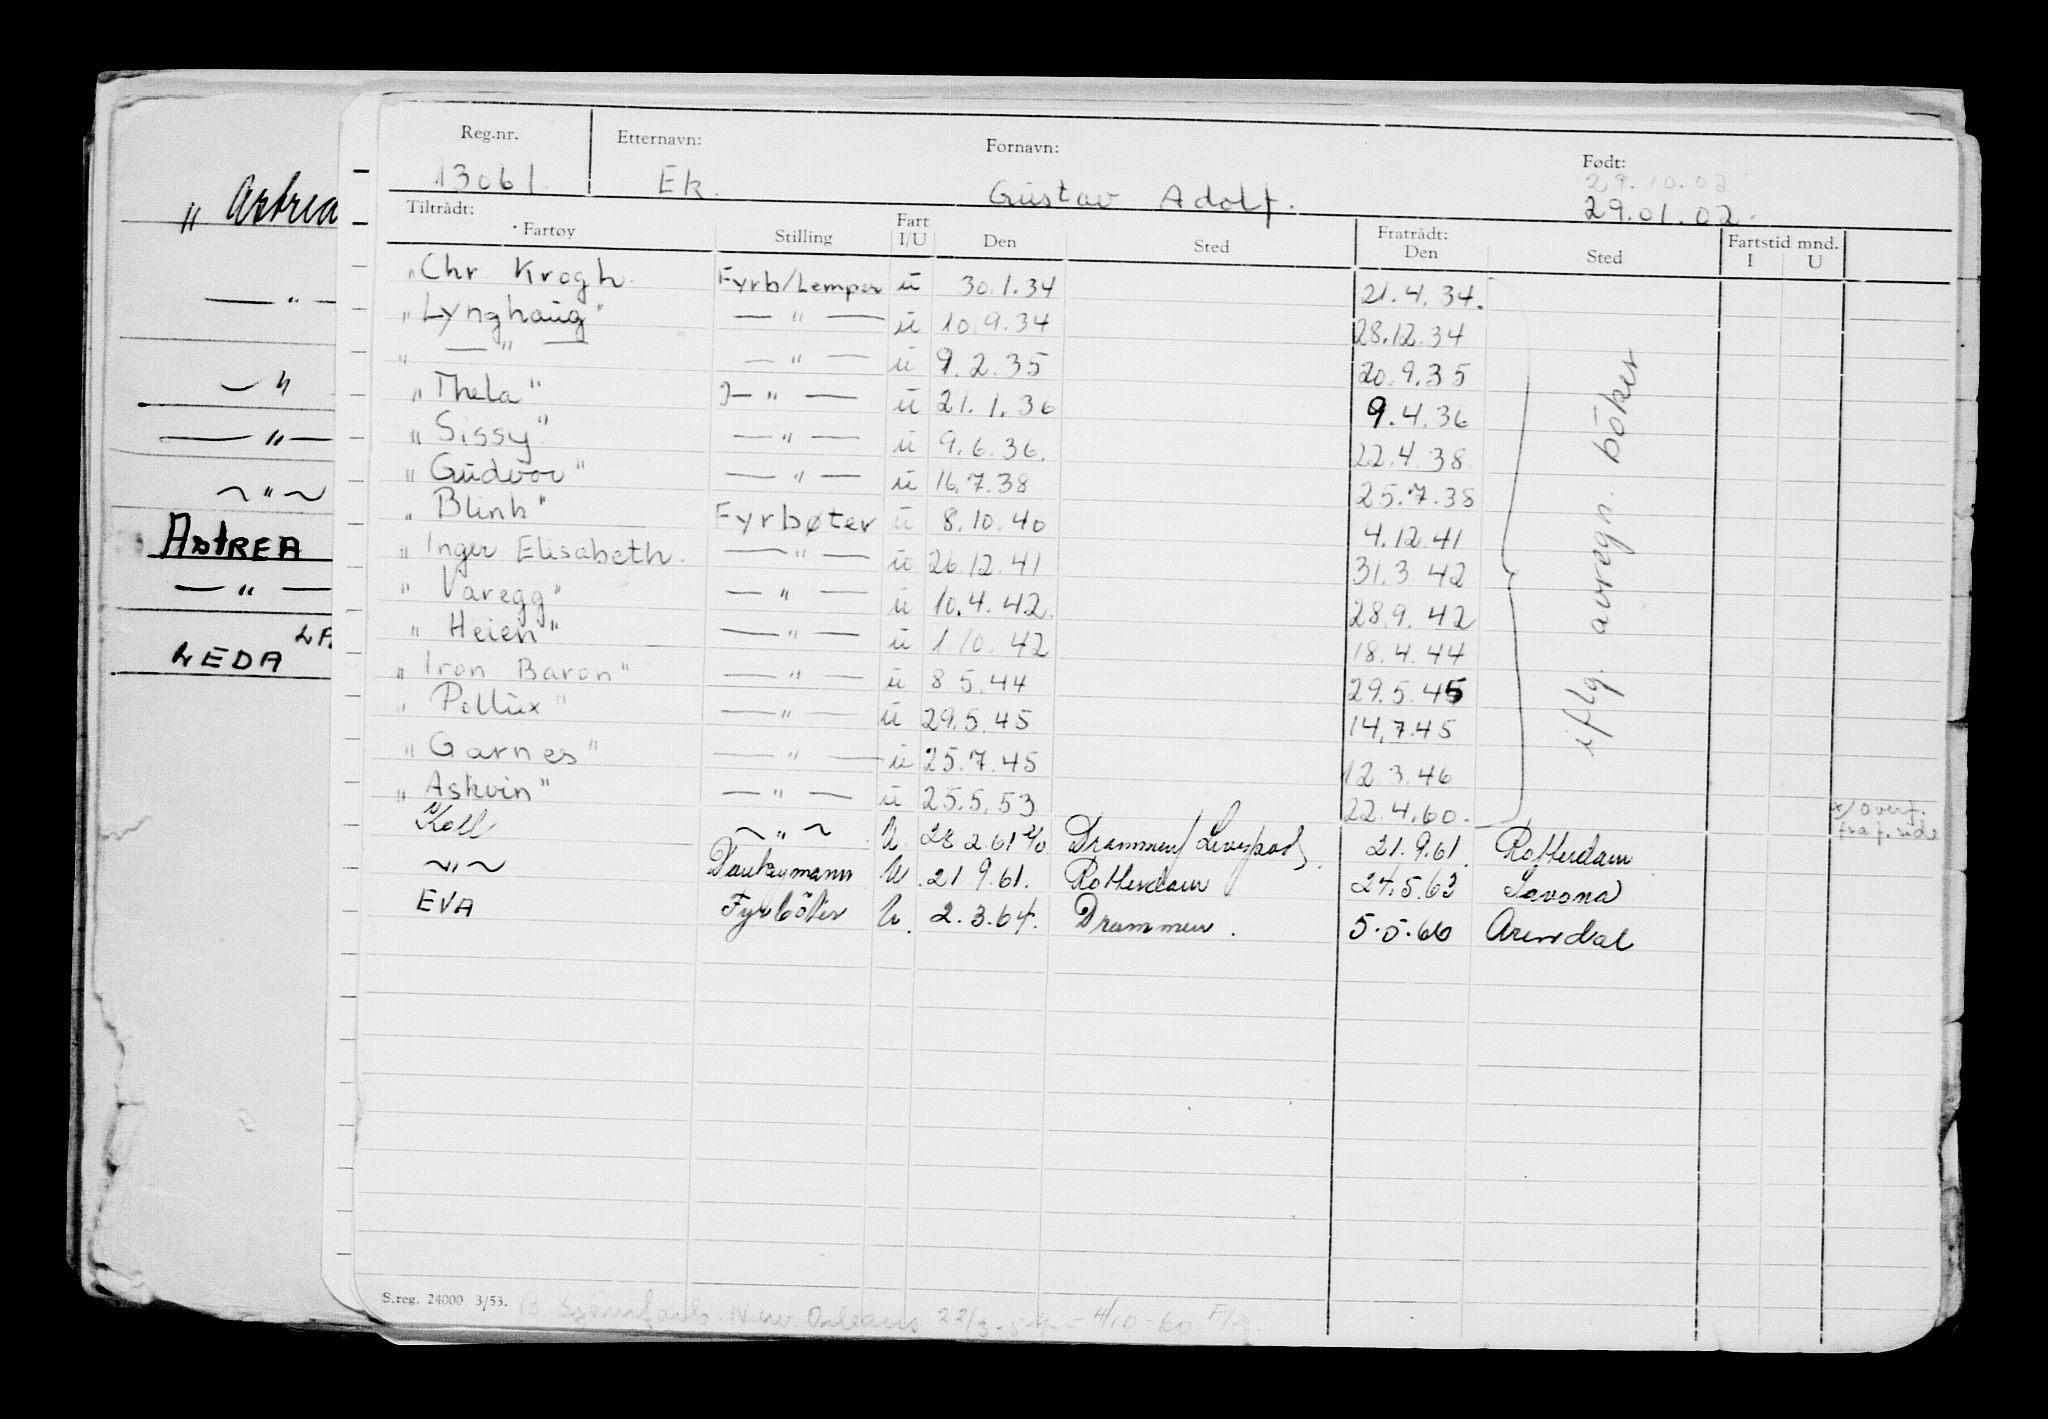 Reg.nr. Etternavn: Fornavn: Født:
29.10.02
13061 Ek. Gustav Adolf. 29.01.02.
Tiltrådt: Fart Fratrådt: Fartstid mnd.
Fartøy Stilling I/U Den Sted Den Sted I U
"Chr. Krogh. Fyrb/Lemper ū 30.1.34 21.4.34.
"Lynghaug" — " — ū 10.9.34 28.12.34
" — " — — " — ū 9.2.35 20.9.35
"Thela" — " — ū 21.1.36 9.4.36
"Sissy" — " — ū 9.6.36. 22.4.38
"Gudvor" — " — ū 16.7.38 25.7.38
"Blink" Fyrbøter ū 8.10.40 4.12.41
"Inger Elisabeth. — " — ū 26.12.41 31.3.42
"Varegg" — " — ū 10.4.42. 28.9.42
"Heien" — " — ū 1.10.42 18.4.44
"Iron Baron" — " — ū 8.5.44 29.5.45
"Pollux" — " — ū 29.5.45 14.7.45
"Garnes" — " — ū 25.7.45 12.3.46
"Askvin" — " — ū 25.5.53 22.4.60.
iflg. avregn. bøker
x/ overf.
fra f. side
Koll ~ " ~ U. 28.2.61 Drammen/Liverpool 21.9.61. Rotterdam
~ " ~ Donkeymann U. 21.9.61. Rotterdam 24.5.63 Savona
EVA Fyrböter U. 2.3.64. Drammen. 5.5.66 Arendal
S.reg. 24000 3/53. New Orleans
" Astrea
— " —
— " 
— " —
~ " ~
ASTREA
— " —
LEDA